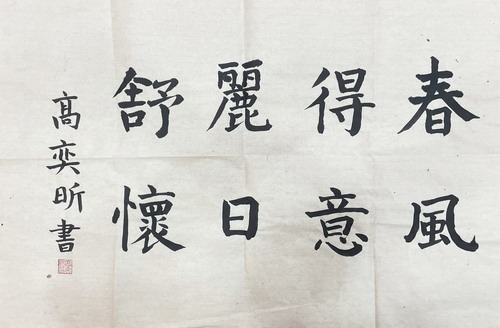 春風
得意
麗日
舒懷
高奕昕書